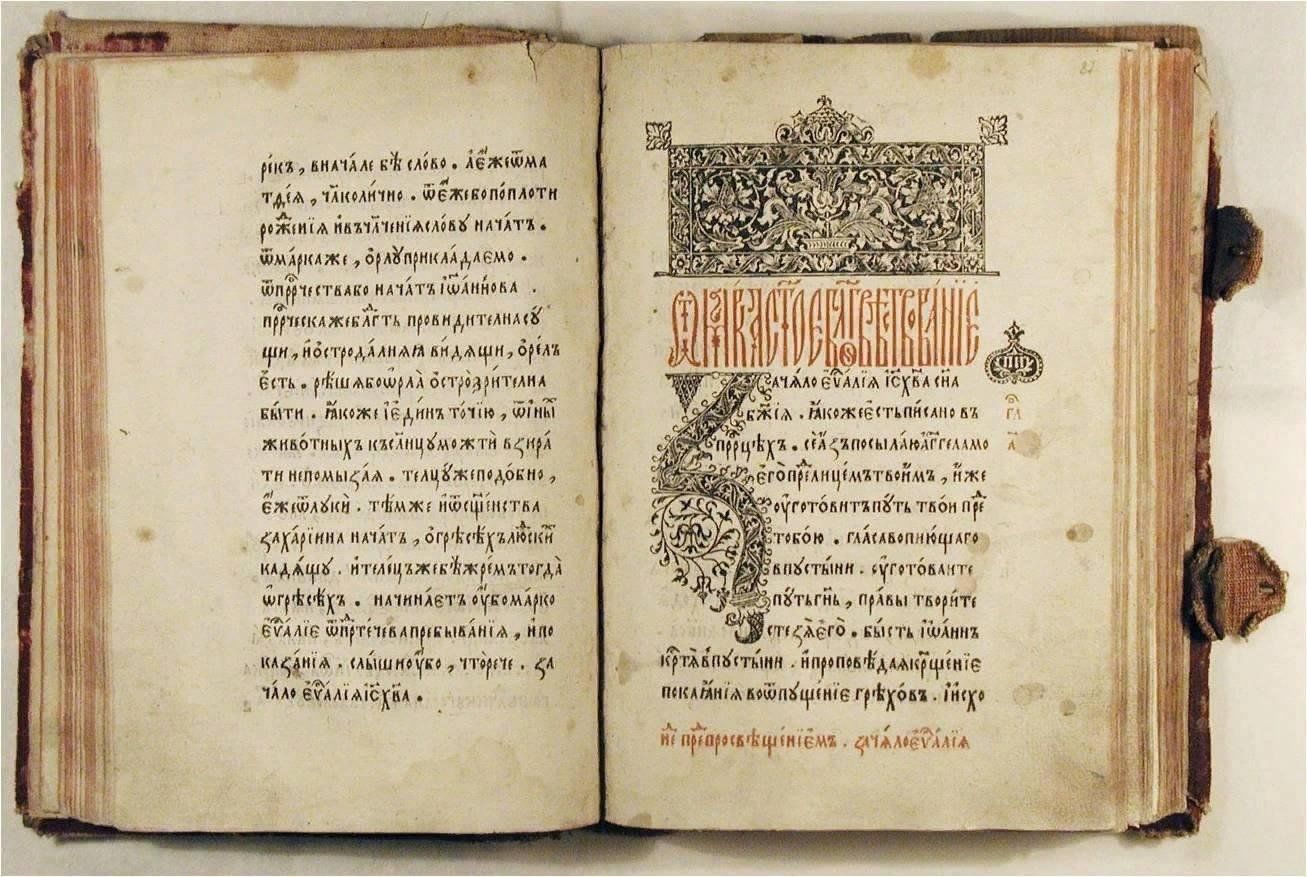 рекъ, вначале бѣ слово. а є́же ѿ ма
тѳе́я, чл҃колично. ѿ є́же бо поплоти
рож҃енїѧ и҆ въчл҃ченїѧ словꙋ нача́тъ.
ѿ ма́рка же, ѻ҆рлꙋ прикла́даемо.
ѿ прⷪ҇рчества бо нача́тъ і҆ѡа́ннова.
прⷪ҇рческа же блгⷣть провидителна сꙋ
щи, и҆ ѻ҆стро да́лняѧ ви́дѧщи, ѻ҆ре́лъ
є҆сть. рѣшѧ бо ѻ҆рла̀ ѻ҆стро̀зри́телна
бы́ти. ꙗ҆коже і҆ є҆ди́нъ то́чїю, ѿ и҆ны́
живо́тныхъ къ сл҃нцꙋ мо́жтѐ взира́
ти непомꙁа́ѧ. телцꙋ́ же подо́бно,
є҆́же ѿ лꙋки̇̀. тѣ́мже и҆ ѿ сщ҃е́нства
ꙁаха́рїина нача́тъ, ѻ҆ грѣсѣ́хъ людски
кадѧ́щꙋ. и҆ теле́цъ же бѣ̀ жре́мъ тогда̀
ѡ҆ грѣсѣ́хъ. начина́етъ ѹ҆́бо ма́рко
є҆ѵⷢ҇а́лїе ѿ прⷣте́чева пребыва́нїѧ, и҆ по
каꙁа́нїѧ. слы́ши ѹ҆́бо, что̀ рече. ꙁа
ча́ло є҆ѵⷢ҇а́лїѧ і҆с҃ х҃ва.
ꙁача́ло є҆ѵⷢ҇а́лїѧ і҆с҃ х҃ва сн҃а
бж҃їѧ. ꙗ҆коже є҆сть пи́сано въ
прⷪ҇рцѣхъ. се а҆ꙁъ посыла́ю а҆́гг҃ела мо
є҆го̀ преⷣ лице́мъ твои́мъ, и҆́же
ѹ҆гото́витъ пꙋть тво́и преⷣ
тобо́ю. гла́съ вопию́щаго
в пꙋсты́ни. ѹ҆гото́ваите
пꙋ́ть гн҃ь, пра́вы твори́те
стеꙁѧ̀ є҆гѡ̀. бы́сть і҆ѡа́ннъ
крⷭ҇тѧ̀ в пꙋсты́ни. и҆ проповѣ́даѧ крⷭ҇ще́нїе
покаѧ́нїѧ во ѿпꙋще́нїе грѣхо́въ. и҆ и҆схо
нⷣе преⷣ просвѣще́нїемъ. ꙁача́ло є҆ѵⷢ҇а́лїѧ